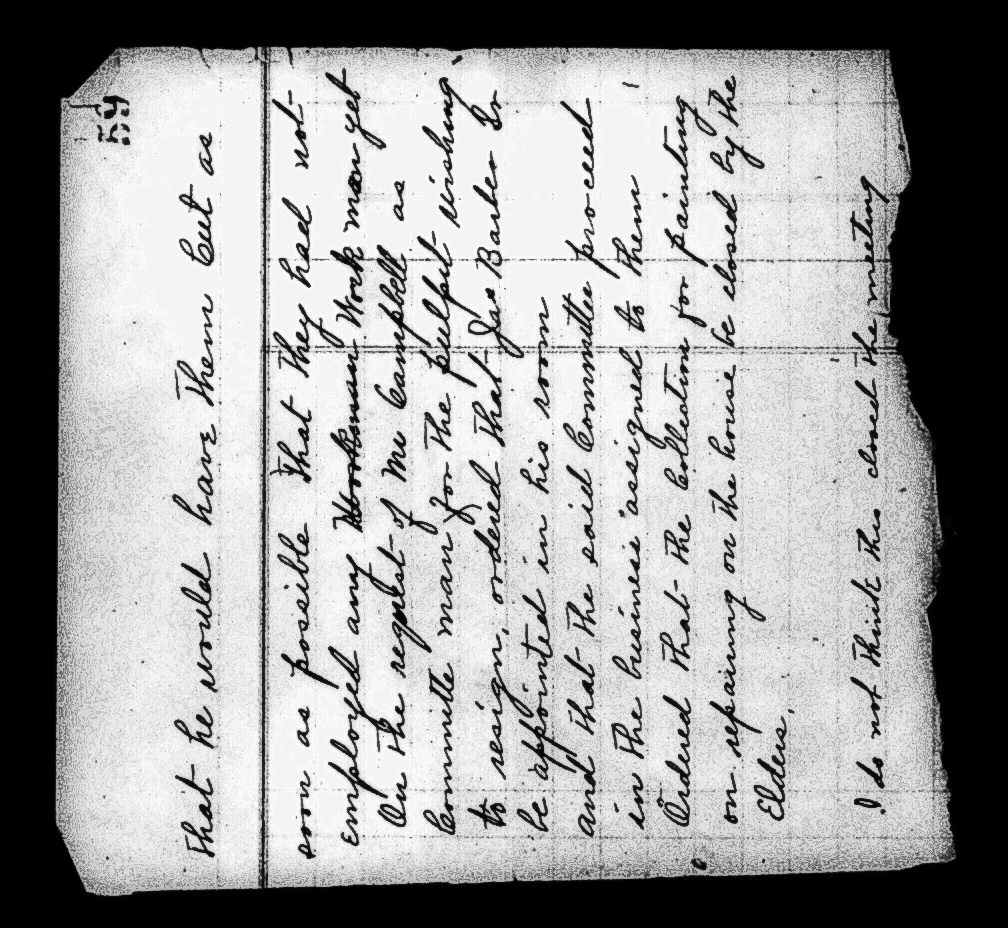 59
that he would have them cut as
soon as possible that they had not
employed any Workman Work man yet
On the request of Mr Campbell as
Committe man for the pulpit wishing
to resign, ordered that Jas Barber Sr
be appointed in his room
and that the said Committee proceed
in the business assigned to them
Ordered that the Collection for painting
on repairing on the house be closed by the
Elders.
I do not think this closed the meeting